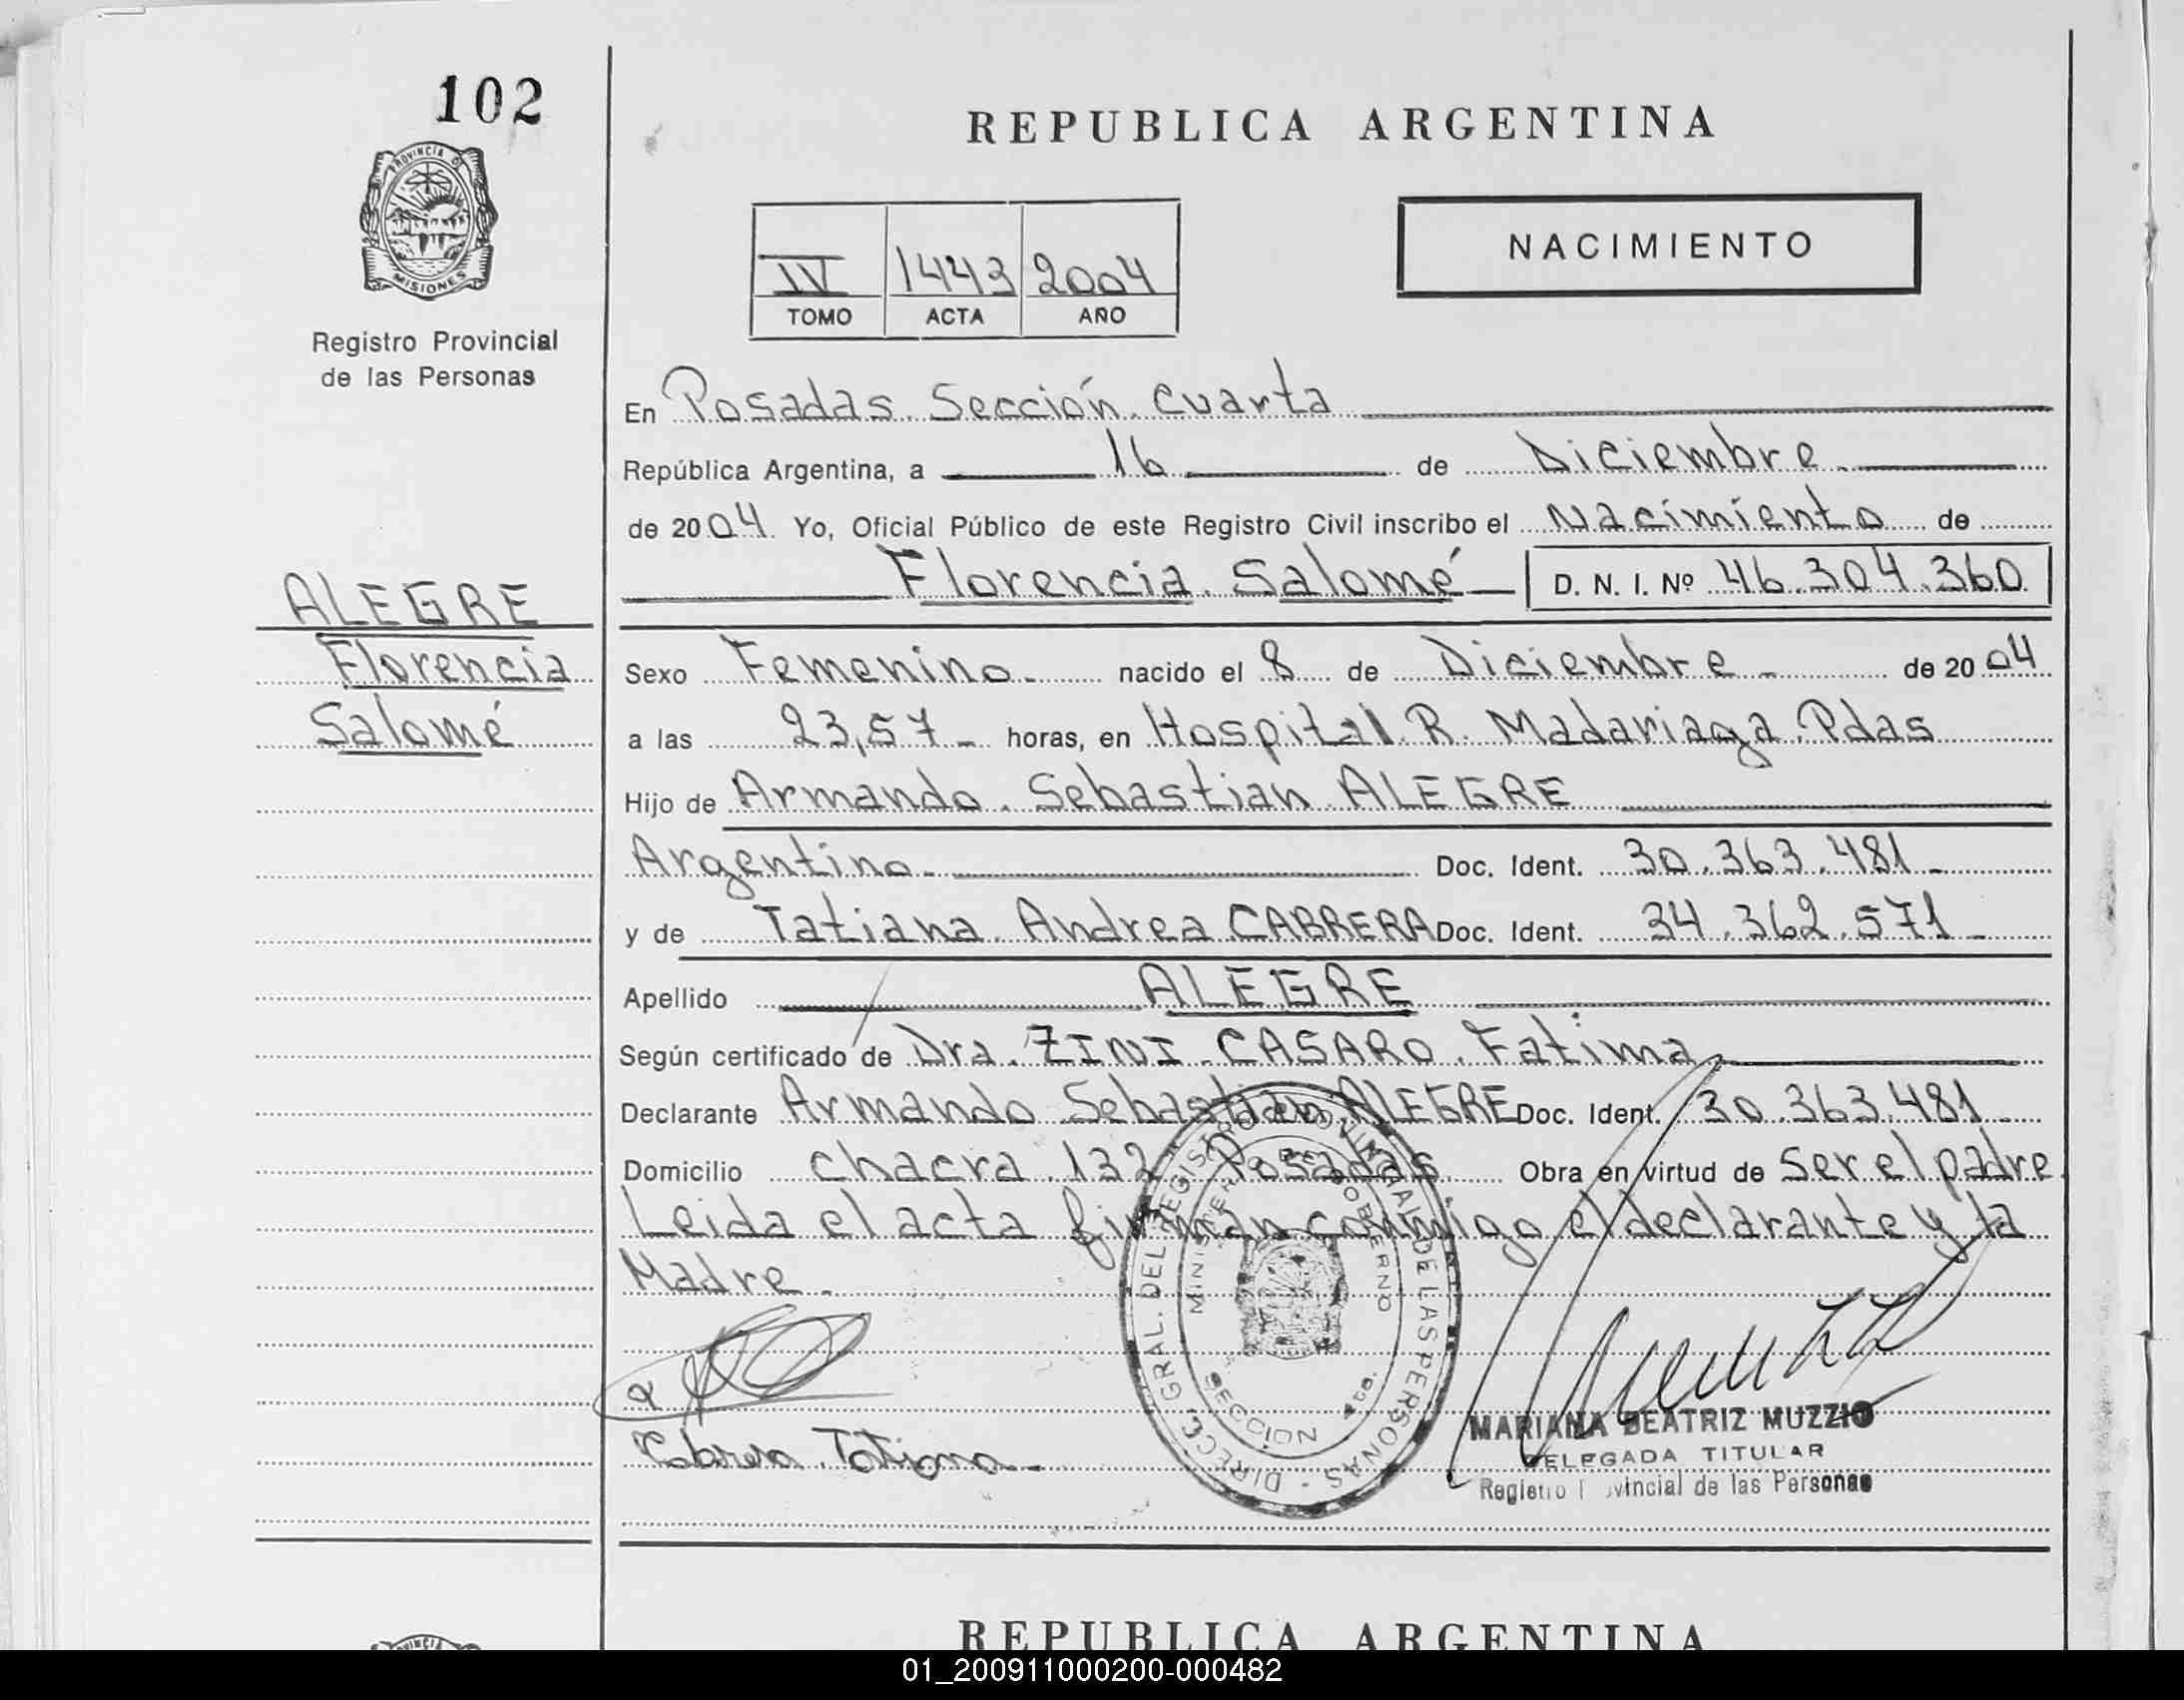 102
REPUBLICA ARGENTINA
PROVINCIA D
MISIONES
Registro Provincial
de las Personas
IV 1443 2004
TOMO ACTA AÑO
NACIMIENTO
En Posadas Sección Cuarta
República Argentina, a 16 de Diciembre
de 2004 Yo, Oficial Público de este Registro Civil inscribo el Nacimiento de
Florencia Salomé D. N. I. Nº 46.304.360
ALEGRE
Florencia
Salomé
Sexo Femenino nacido el 8 de Diciembre de 2004
a las 23,57 horas, en Hospital R. Madariaga Pdas
Hijo de Armando Sebastian ALEGRE
Argentino Doc. Ident. 30.363.481
y de Tatiana Andrea CABRERA Doc. Ident. 34.362.571
Apellido ALEGRE
Según certificado de Dra. ZINI CASARO Fatima
Declarante Armando Sebastian ALEGRE Doc. Ident. 30.363.481
Domicilio chacra 132 Posadas Obra en virtud de Ser el padre
Leida el acta firman conmigo el declarante y la
Madre.
DIRECC. GRAL. DEL REGISTRO PROVINCIAL DE LAS PERSONAS
MINISTERIO DE GOBIERNO
SECCIÓN 4ta.
Cabrera Tatiana
MARIANA BEATRIZ MUZZIO
DELEGADA TITULAR
Registro Provincial de las Personas
REPUBLICA ARGENTINA
01_200911000200-000482